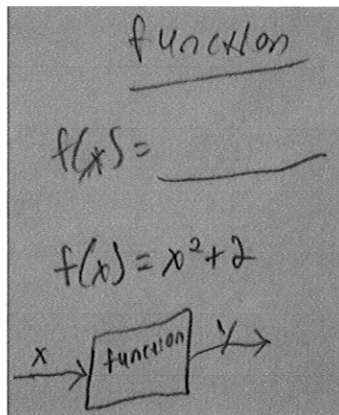 function
f(x) =
f(x) = x² + 2
x function y